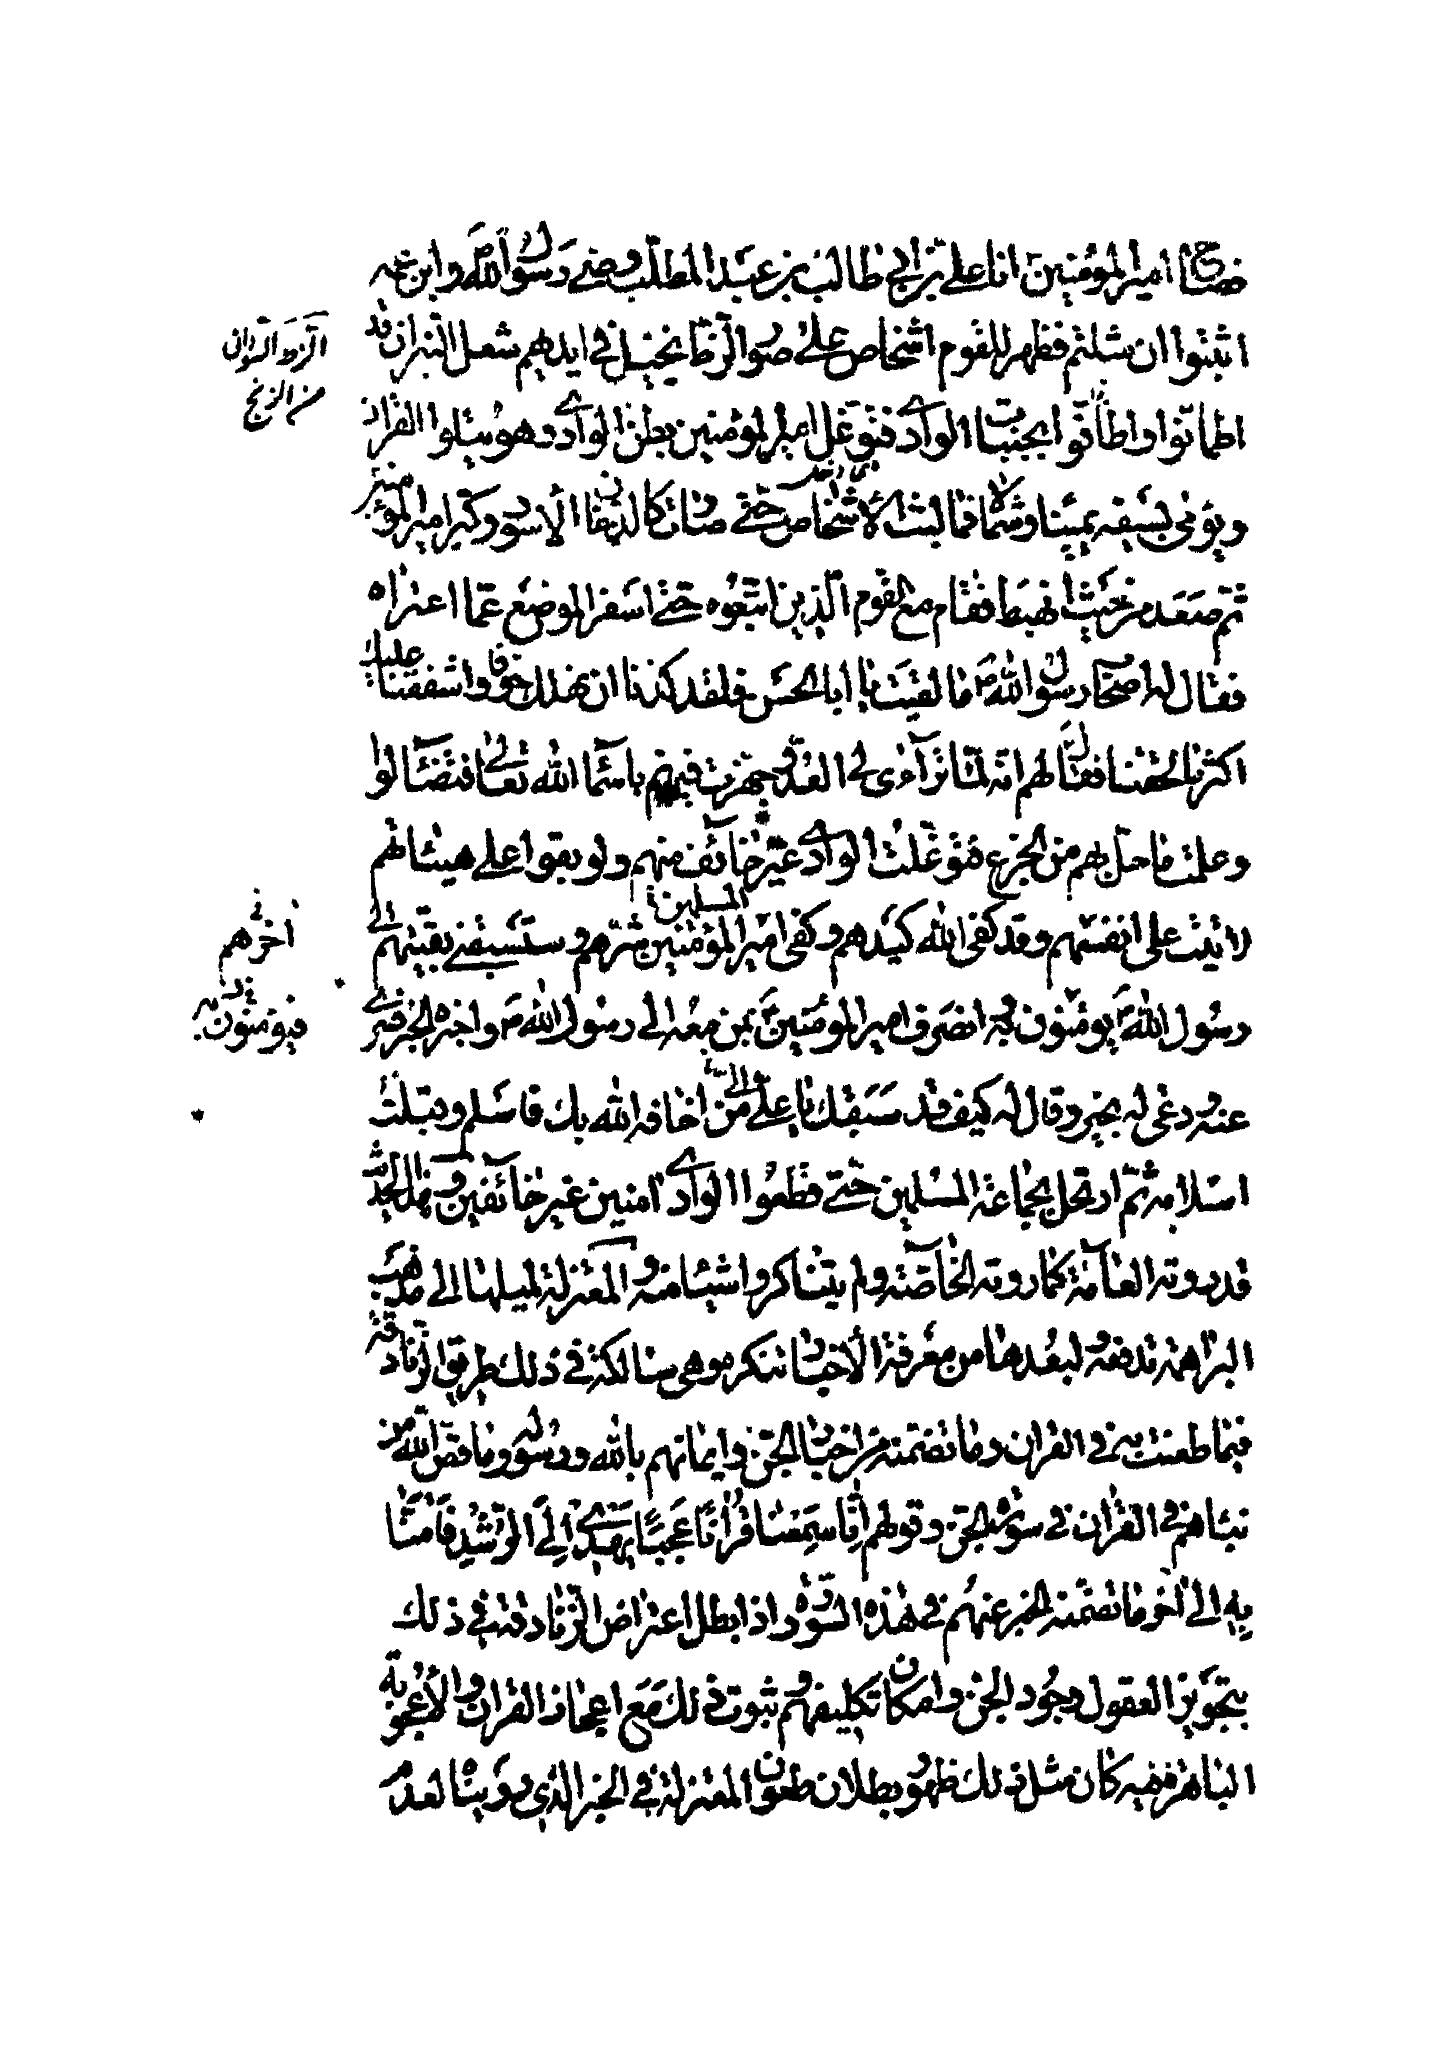 صاح امير المؤمنين انا على بن ابي طالب بن عبد المطلب وصى رسول الله ص وابن عمه
اثبتوا ان شئتم فظهر للقوم اشخاص على صور الزط يخيل في ايديهم شعل النيران قد
اطمانوا واطافوا بجنبات الوادى فتوغل امير المؤمنين بطن الوادى وهو يتلوا القران
ويؤمى بسيفه يمينا وشمالا فما لبثت الاشخاص حتى صارت كالدخان الاسود وكبر امير المؤمنين
ثم صعد من حيث انهبط فقام مع القوم الذين اتبعوه حتى اسفر الموضع عما اعتراه
فقال له اصحاب رسول الله ص ما لقيت يا ابا الحسن فلقد كدنا ان نهلك خوفا واشفقنا عليك
اكثر مما لحقنا فقال لهم انه لما تراءى لي العدو جهرت فيهم باسماء الله تعالى فتضاءلوا
وعلمت ما حل بهم من الجزع فتوغلت الوادى غير خائف منهم ولو بقوا على هيئاتهم
لاتيت على انفسهم وقد كفى الله كيدهم وكفى المسلمين امير المؤمنين شرهم وستسبقني بقيتهم الى
رسول الله ص يؤمنون به انصرف امير المؤمنين بمن معه الى رسول الله ص واخبره الخبر فسرى
عنه ودعى له بخير وقال له كيف قد سبقك يا على الى من اخافه الله بك فاسلم وقبلت
اسلامه ثم ارتحل بجماعة المسلمين حتى قطعوا الوادى امنين غير خائفين وهذا الحديث
قد روته العامة كما روته الخاصة ولم يتناكروا شيئا منه والمعتزلة لميلها الى مذهب
البراهمة تدفعه ولبعدها من معرفة الاخبار تنكره وهى سالكة في ذلك طريق الزنادقة
فيما طعنت به في القران وما تضمنه من اخبار الجن وايمانهم بالله ورسوله وما قص الله من
نبئاهم في القران في سورة الجن وقولهم اِنَّا سَمِعْنَا قُرْاٰنًا عَجَبًا يَهْدِى اِلَى الرُّشْدِ فَاٰمَنَّا
بِهِ الى اخر ما تضمنه الخبر عنهم في هذه السورة واذا بطل اعتراض الزنادقة في ذلك
بتجويز العقول وجود الجن وامكان تكليفهم وثبوت ذلك مع اعجاز القران والاعجوبة
الباهرة فيه كان مثل ذلك ظهور بطلان طعون المعتزلة في الخبر الذي رويناه لعدم
الزط السودان
من الزنج
اخرهم
فيؤمنون به